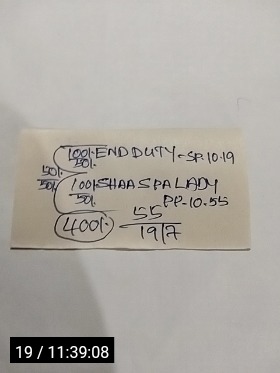 100/- END DUTY - SP. 10.19
50/-
150/-
50/-
100/- SHAASPA LADY
50/- PP-10.55
400/- 55
19/7
19 / 11:39:08